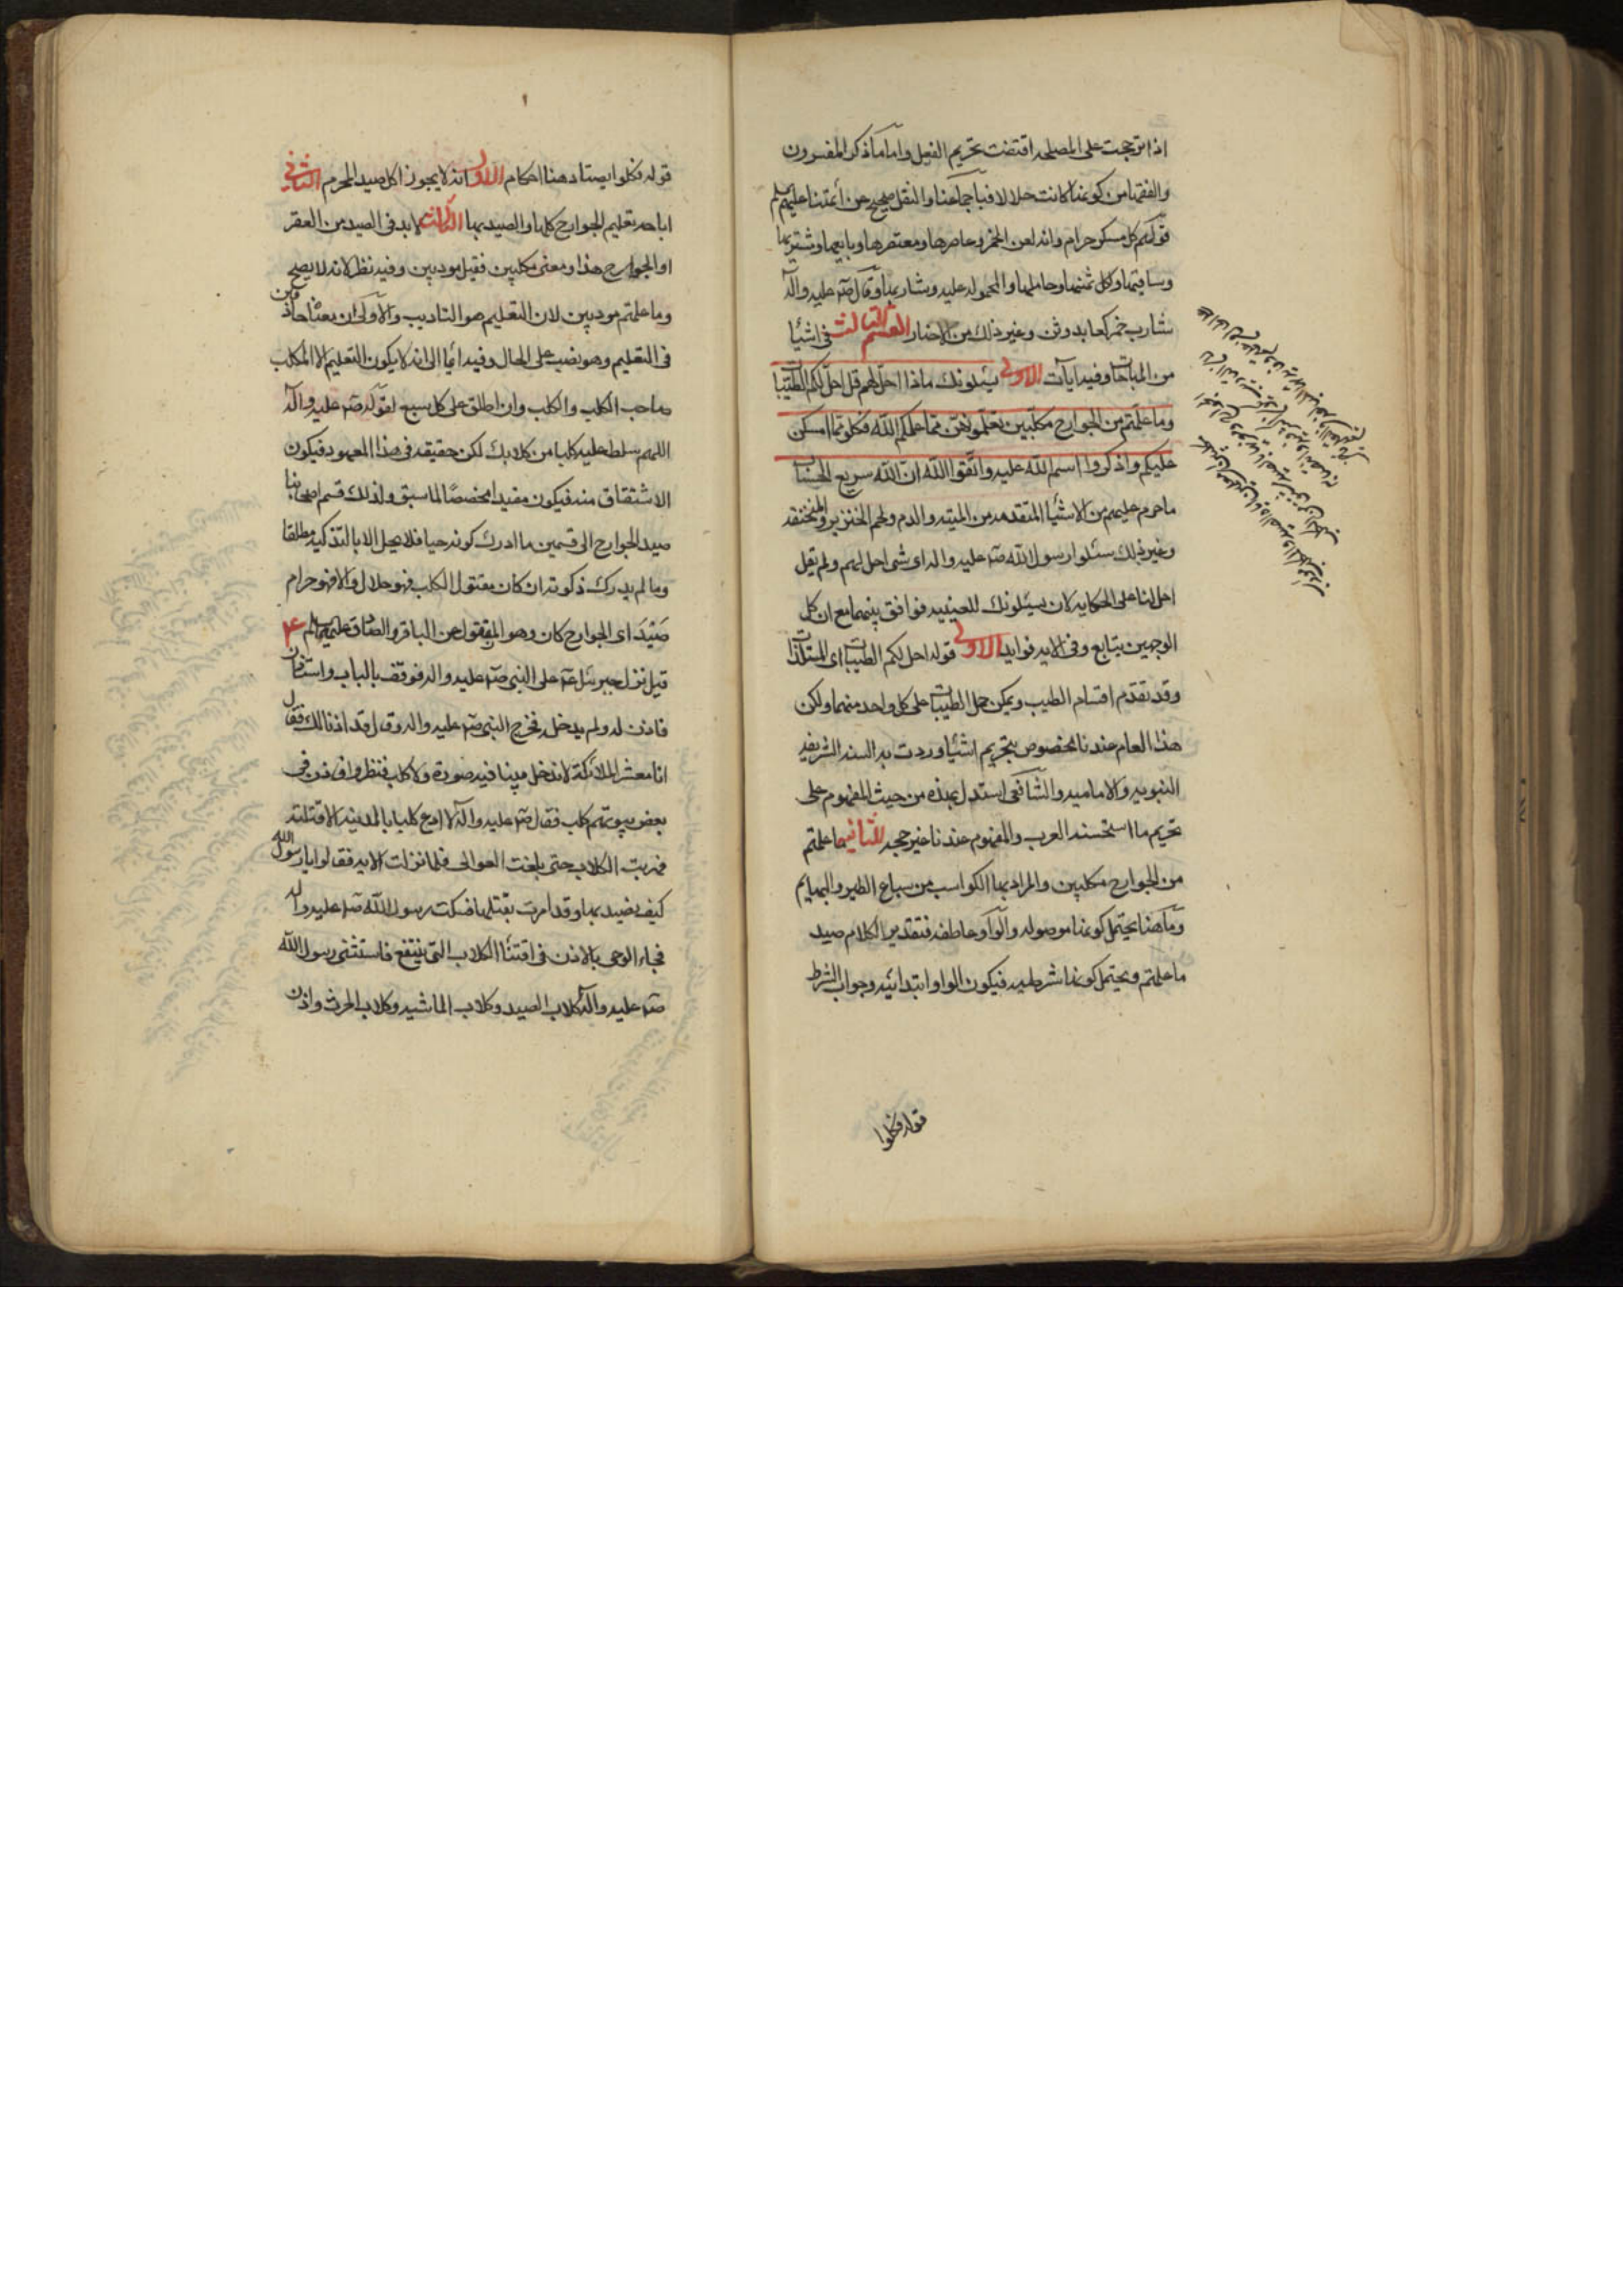 اذا ترجحت على المصلحه اقتضت تحريم الفعل واما ما ذكر المفسرون
والفقها من كونها كانت حلالا فباجماعنا والنقل صحيح عن أئمتنا عليهم السلم
قولهم كل مسكر حرام وانه لعن الخمر وعاصرها ومعتصرها وبايعها ومشتريها
وساقيها واكل ثمنها وحاملها والمحموله عليه وشاربها وقال صلى عليه وآله
شارب خمر كعابد وثن وغير ذلك من الاخبار القسم الثالث فى اشيا
من المباحات وفيه آيات الاولى يسئلونك ماذا احل لهم قل احل لكم الطيبات
وما علمتم من الجوارح مكلبين تعلمونهن مما علمكم الله فكلوا مما امسكن
عليكم واذكروا اسم الله عليه واتقوا الله ان الله سريع الحساب
ما حرم عليهم من الاشيا المتقدمه من الميته والدم ولحم الخنزير والمنخنقه
وغير ذلك سئلوا رسول الله صلى عليه واله اى شى احل لهم ولم يقل
احل لنا على الحكايه لان يسئلونك للغيبه فوافق بينهما مع ان كل
الوجهين يتابع وفى الايه فوايد الاولى قوله احل لكم الطيبات اى المستلذات
وقد تقدم اقسام الطيب ويمكن حمل الطيبات على كل واحد منهما ولكن
هذا العام عندنا مخصوص بتحريم اشيا وردت به السنه الشريفه
النبويه والاماميه والشافعى استدل بهذه من حيث المفهوم على
تحريم ما استخسنه العرب والمفهوم عندنا غير حجه الثانيه ما علمتم
من الجوارح مكلبين والمراد بها الكواسب من سباع الطير والبهايم
وما هنا يحتمل كونها موصوله والواو عاطفه فتقدير الكلام صيد
ما علمتم ويحتمل كونها شرطيه فيكون الواو ابتدائيه وجواب الشرط
قوله فكلوا
قوله فكلوا يصتاد هنا احكام الاول انه لا يجوز اكل صيد المحرم الثانى
اباحه تعليم الجوارح كلها والصيد بها الثالث لا بد فى الصيد من العقر
او الجوارح هذا ومعنى مكلبين فقيل مودبين وفيه نظر لانه لا يصح
وما علمتم مودبين لان التعليم هو التاديب والاولى ان معناه حاذقين
فى التعليم وهو نصب على الحال وفيه ايما الى انه لا يكون التعليم الا للكلب
صاحب الكلب والكلب وان اطلق على كل سبع لقوله صلى عليه وآله
اللهم سلط عليه كلبا من كلابك لكن حقيقه فى هذا المعهود فيكون
الاشتقاق منه فيكون مفيدا مخصصا لما سبق ولذلك قسم اصحابنا
صيد الجوارح الى قسمين ما ادرك كونه حيا فلا يحل الا بالتذكيه مطلقا
وما لم يدرك ذكوته ان كان مقتول الكلب فهو حلال والا فهو حرام
صَيْدَ اى الجوارح كان وهو المنقول عن الباقر والصادق عليهما السلم ۴
قيل نزل جبرئيل ع على النبى صلى عليه واله فوقف بالباب واستاذن
فاذن له ولم يدخل فخرج النبى صلى عليه واله وقال قد اذنا لك فقال
انا معشر الملائكة لا ندخل بيتا فيه صورة ولا كلب فنظروا فاذن فى
بعض بيوتهم كلب فقال صلى عليه وآله لا ادع كلبا بالمدينه الا قتلته
فهربت الكلاب حتى بلغت العوالى فلما نزلت الايه فقالوا يا رسول الله
كيف نصيد بها وقد امرت بقتلها فسكت رسول الله صلى عليه واله
فجاء الوحى بالاذن فى اقتنا الكلاب التى ينتفع فاستثنى رسول الله
صلى عليه وآله كلاب الصيد وكلاب الماشيه وكلاب الحرث واذن